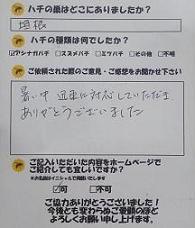 ハチの巣はどこにありましたか?
垣根
ハチの種類は何でしたか?
☑アシナガバチ □スズメバチ □ミツバチ □その他 □不明
ご依頼された際のご意見・ご感想をお聞かせ下さい
暑い中 迅速に対応していただき
ありがとうございました
ご記入いただいた内容をホームページで
ご紹介しても宜しいですか?
※お名前はイニシャルで掲載いたします
☑可 □不可
ご協力ありがとうございました!
今後とも変わらぬご愛顧のほど
よろしくお願い申し上げます。